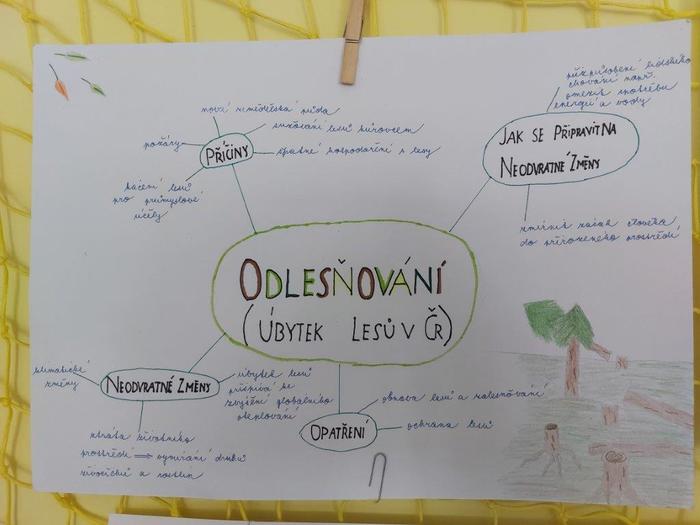 nová zemědělská půda
sužování lesů kůrovcem
požáry
PŘÍČINY
špatné hospodaření s lesy
kácení lesů
pro průmyslové
účely
přizpůsobení lidského
chování např.
omezit spotřebu
energií a vody
JAK SE PŘIPRAVIT NA
NEODVRATNÉ ZMĚNY
zmírnit zásah člověka
do přirozeného prostředí
ODLESŇOVÁNÍ
(ÚBYTEK LESŮ V ČR)
klimatické
změny
NEODVRATNÉ ZMĚNY
úbytek lesů
přispívá ke
zvýšení globálního
oteplování
ztráta životního
prostředí ⇒ vymírání druhů
živočichů a rostlin
OPATŘENÍ
obnova lesů a zalesňování
ochrana lesů